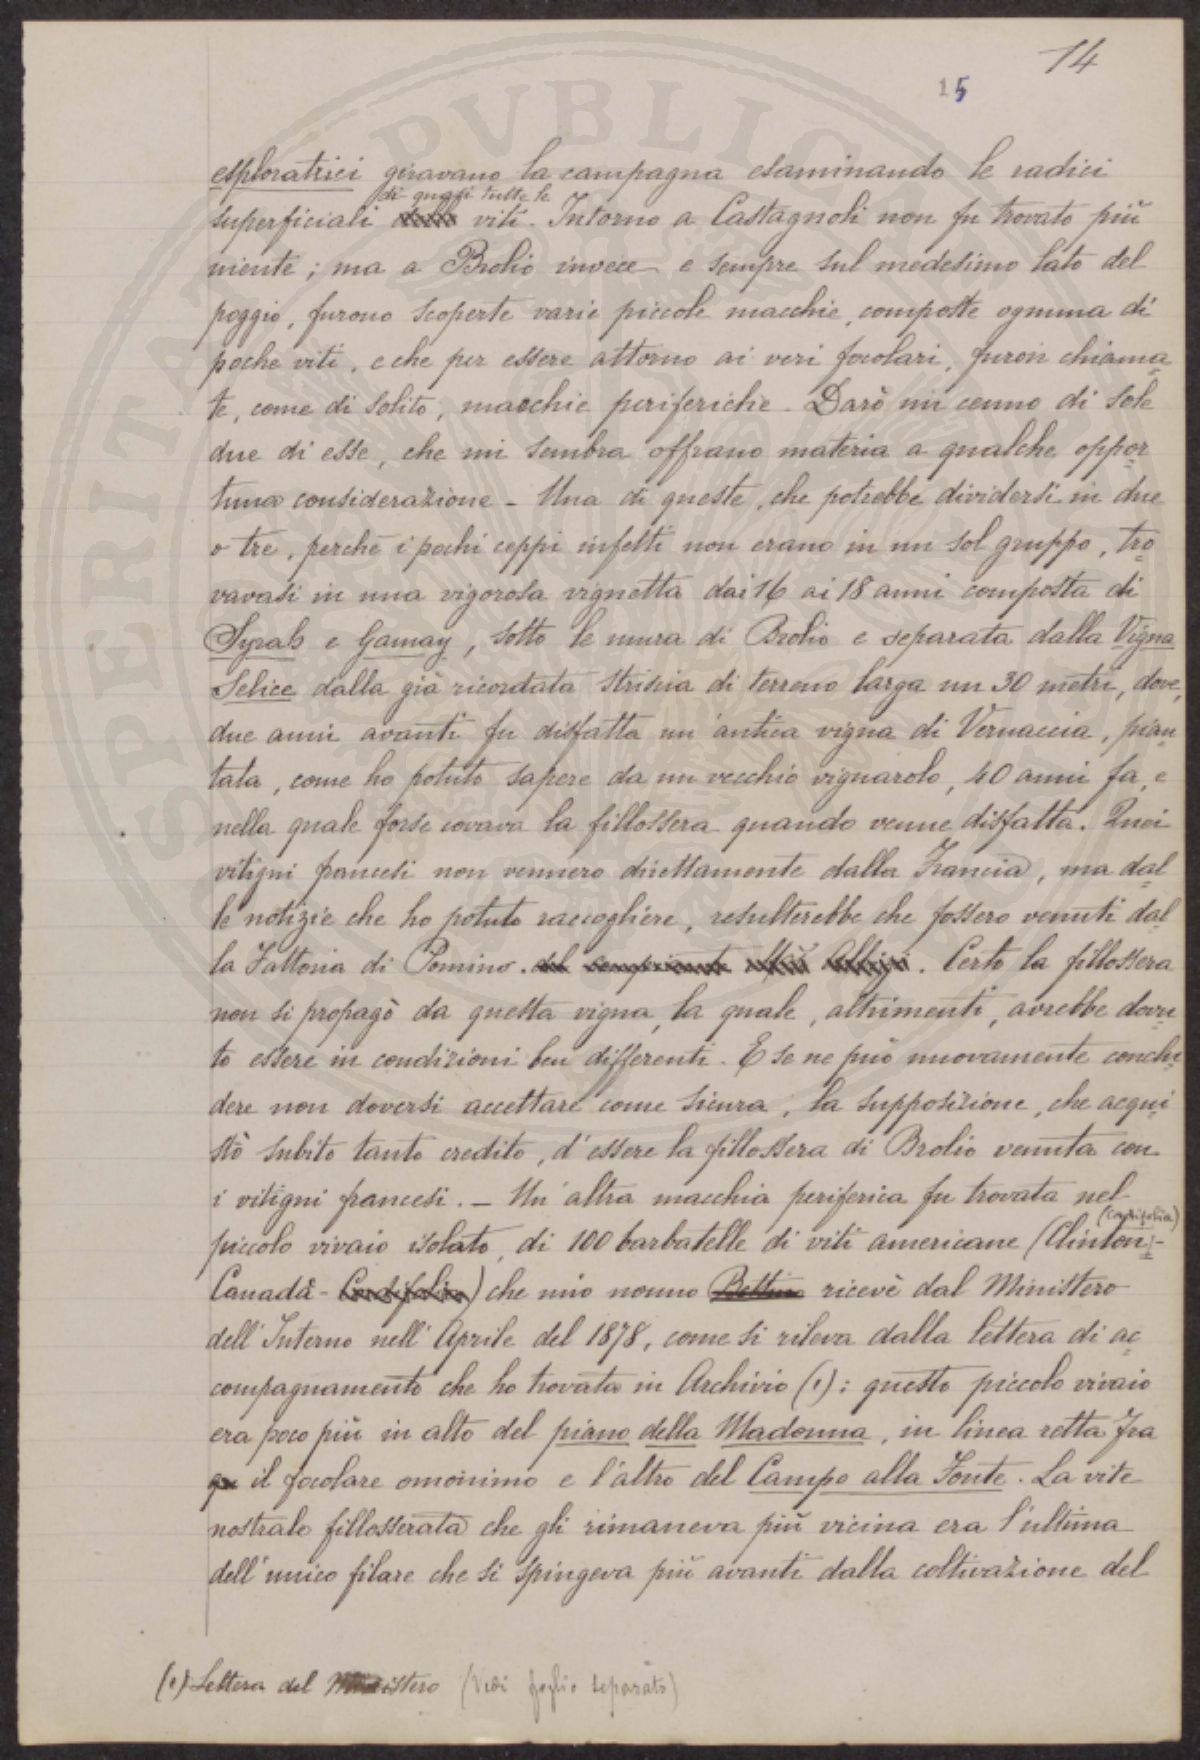 14
15
esploratrici giravano la campagna esaminando le radici
di quasi tutte le
superficiali delle viti. Intorno a Castagnoli non fu trovato più
niente; ma a Brolio invece e sempre sul medesimo lato del
poggio, furono scoperte varie piccole macchie, composte ognuna di
poche viti, e che per essere attorno ai veri focolari, furon chiama
te, come di solito, macchie periferiche. Darò un cenno di sole
due di esse, che mi sembra offrano materia a qualche oppor
tuna considerazione - Una di queste, che potrebbe dividersi in due
o tre, perchè i pochi ceppi infetti non erano in un sol gruppo, tro
vavasi in una vigorosa vignetta dai 16 ai 18 anni composta di
Syrah e Gamay, sotto le mura di Brolio e separata dalla Vigna
Selice dalla già ricordata striscia di terreno larga un 30 metri, dove,
due anni avanti fu disfatta un'antica vigna di Vernaccia, pian
tata, come ho potuto sapere da un vecchio vignarolo, 40 anni fa, e
nella quale forse covava la fillossera quando venne disfatta. Quei
vitigni francesi non vennero direttamente dalla Francia, ma dal
le notizie che ho potuto raccogliere, resulterebbe che fossero venuti dal
la Fattoria di Pomino. del Albizi. Certo la fillossera
non si propagò da questa vigna, la quale, altrimenti, avrebbe dovu
to essere in condizioni ben differenti. E se ne può nuovamente conclu
dere non doversi accettare come sicura, la supposizione, che acqui
stò subito tanto credito, d'essere la fillossera di Brolio venuta con
i vitigni francesi. - Un'altra macchia periferica fu trovata nel
(Cordifolia)
piccolo vivaio isolato, di 100 barbatelle di viti americane (Clinton -
Canadà - Cordifolia) che mio nonno Bettino ricevè dal Ministero
dell'Interno nell'Aprile del 1878, come si rileva dalla lettera di ac
compagnamento che ho trovata in Archivio (1): questo piccolo vivaio
era poco più in alto del piano della Madonna, in linea retta fra
qu il focolare omonimo e l'altro del Campo alla Fonte. La vite
nostrale fillosserata che gli rimaneva più vicina era l'ultima
dell'unico filare che si spingeva più avanti dalla coltivazione del
(1) Lettera del Ministero (Vedi foglio separato)
SPERITAT PVBLICAE